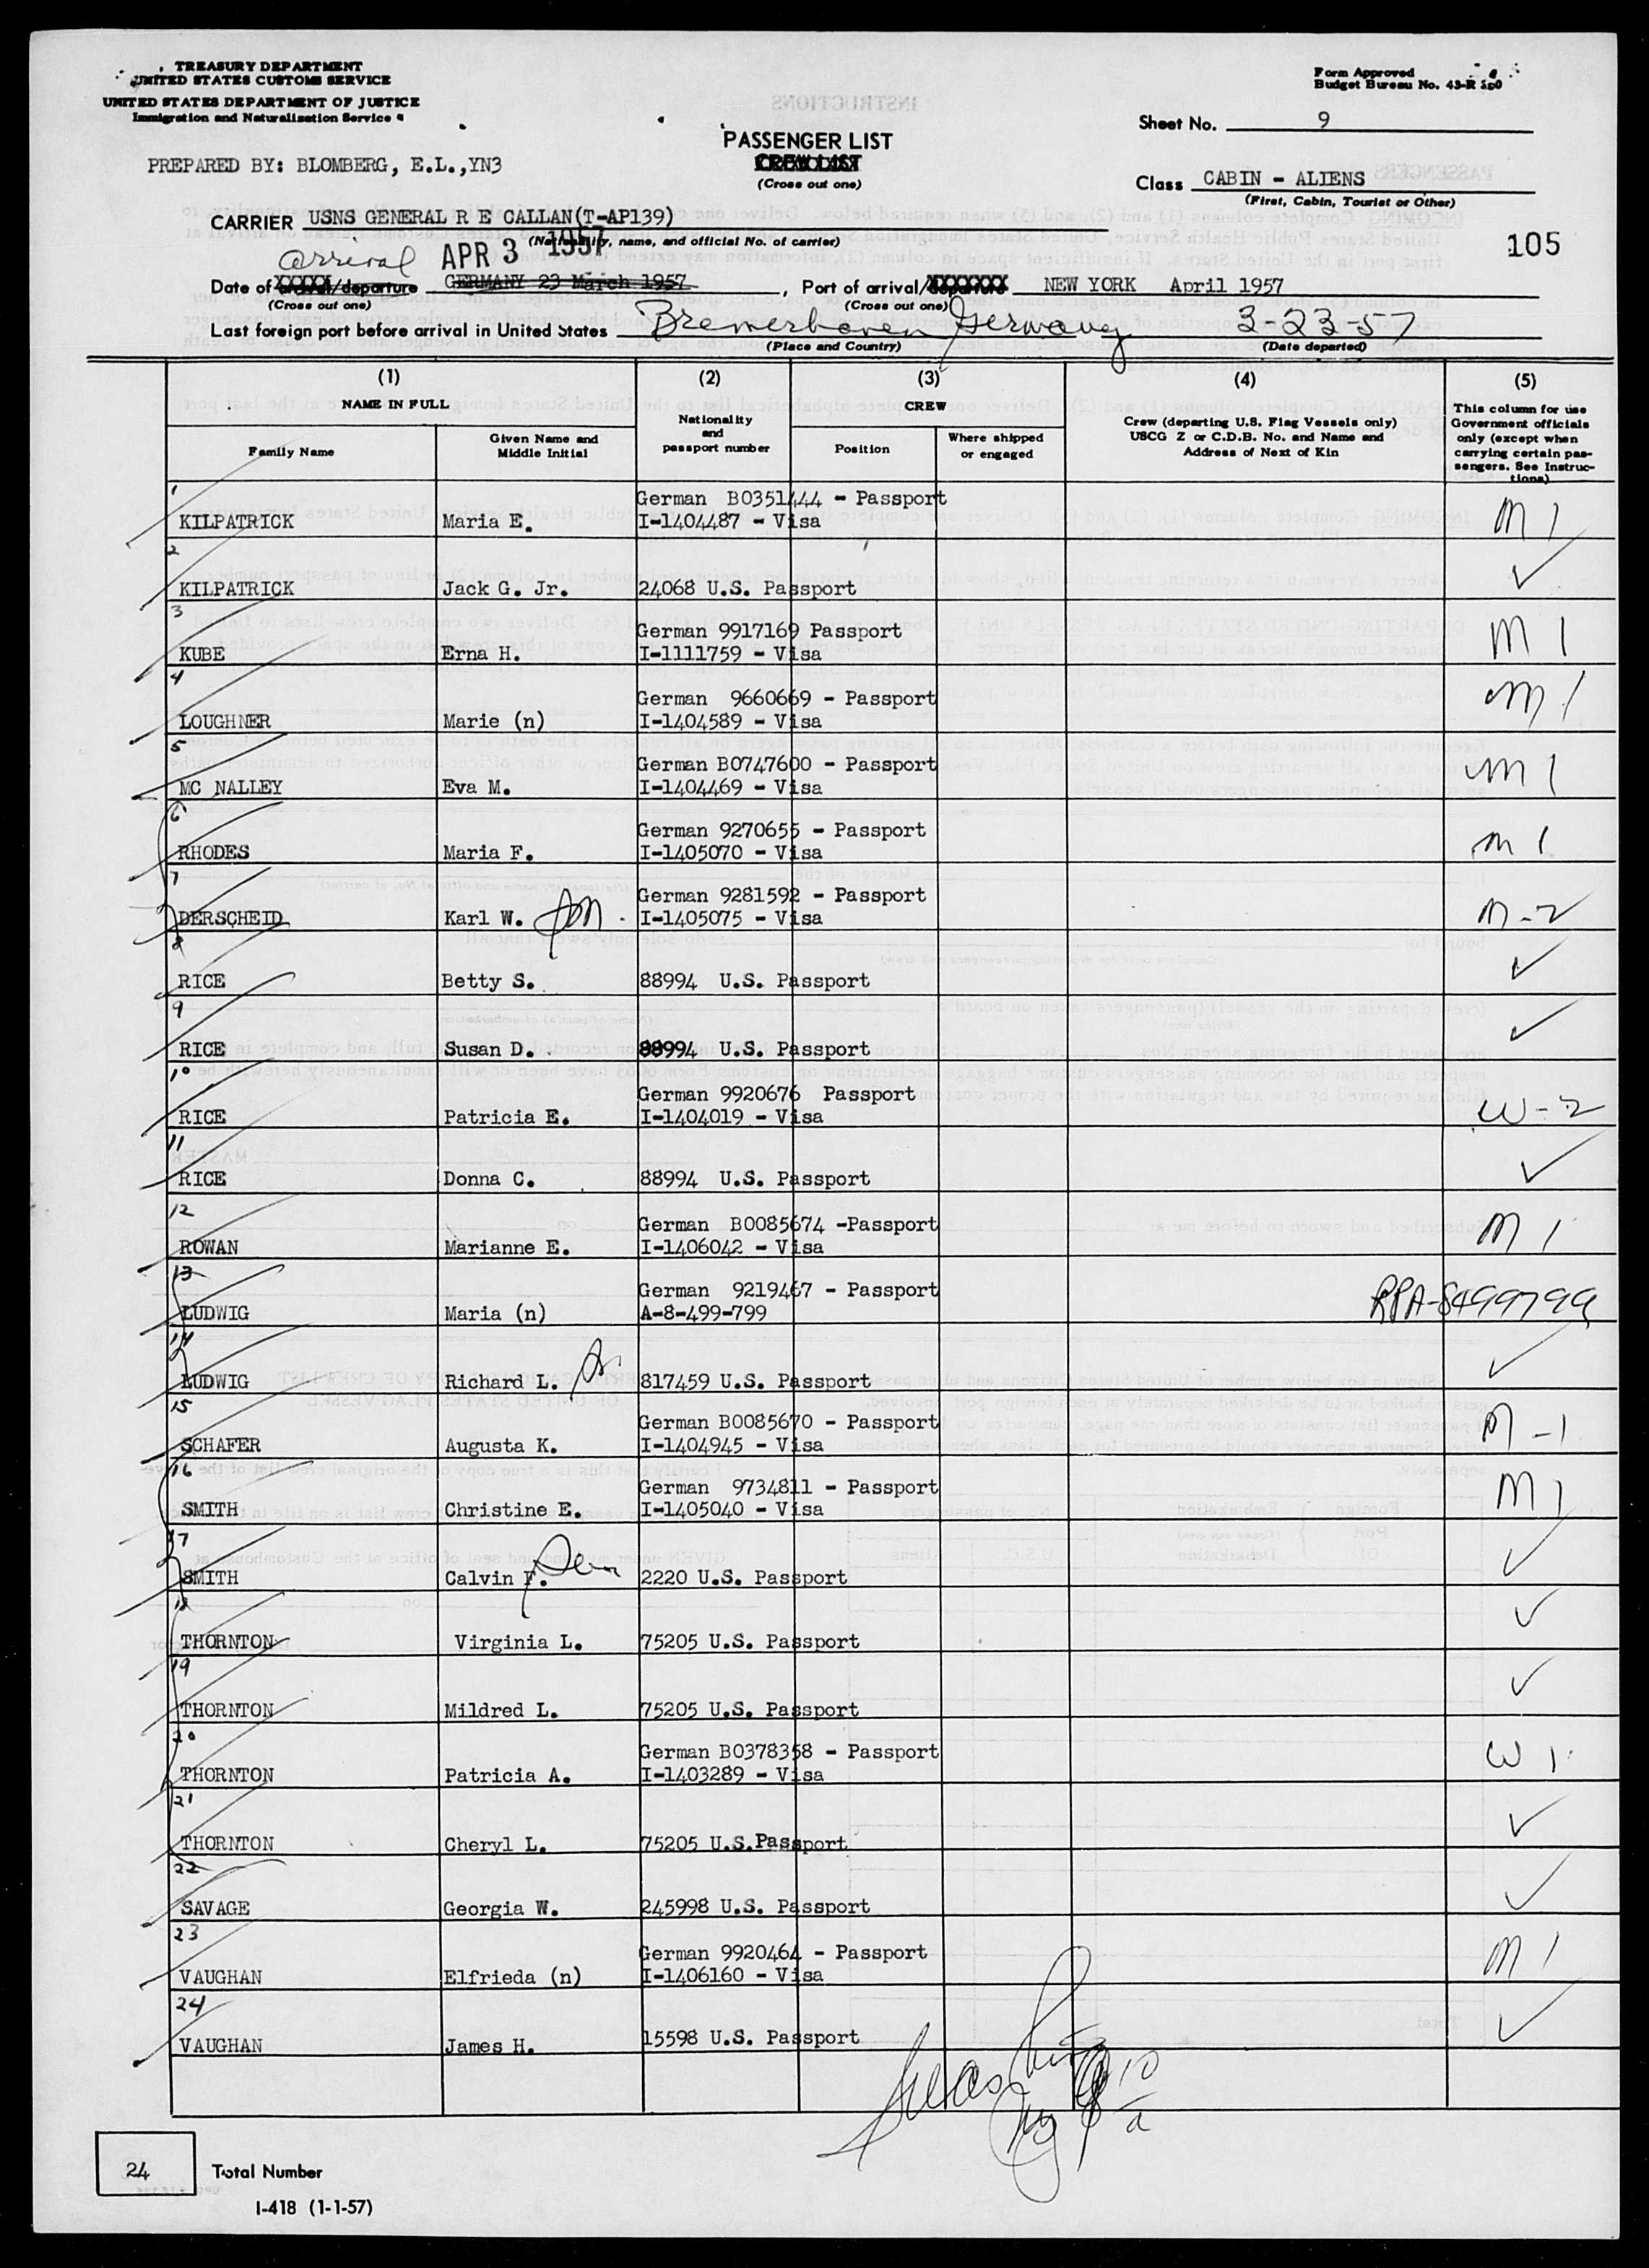 TREASURY DEPARTMENT
UNITED STATES CUSTOMS SERVICE
UNITED STATES DEPARTMENT OF JUSTICE
Immigration and Naturalization Service
Form Approved
Budget Bureau No. 43-R
Sheet No. 9
PASSENGER LIST
CREW LIST
(Cross out one)
PREPARED BY: BLOMBERG, E.L.,YN3
Class CABIN - ALIENS
(First, Cabin, Tourist or Other)
CARRIER USNS GENERAL R E CALLAN(T-AP139)
(Nationality, name, and official No. of carrier)
105
arrival APR 3 1957
Date of arrival/departure GERMANY 23 March 1957, Port of arrival/departure NEW YORK April 1957
(Cross out one) (Cross out one)
Last foreign port before arrival in United States Bremerhaven Germany 3-23-57
(Place and Country) (Date departed)
(1) (2) (3) (4) (5)
NAME IN FULL
Family Name
Given Name and Middle Initial
Nationality and passport number
CREW
Position
Where shipped or engaged
Crew (departing U.S. Flag Vessels only)
USCG Z or C.D.B. No. and Name and
Address of Next of Kin
This column for use
Government officials
only (except when
carrying certain pas-
sengers. See Instruc-
tions)
1 German B0351444 - Passport
KILPATRICK Maria E. I-1404487 - Visa M 1
2
KILPATRICK Jack G. Jr. 24068 U.S. Passport ✓
3 German 9917169 Passport
KUBE Erna H. I-1111759 - Visa M 1
4 German 9660669 - Passport
LOUGHNER Marie (n) I-1404589 - Visa M 1
5 German B0747600 - Passport
MC NALLEY Eva M. I-1404469 - Visa M 1
6 German 9270655 - Passport
RHODES Maria F. I-1405070 - Visa M 1
7 German 9281592 - Passport
DERSCHEID Karl W. I-1405075 - Visa M-2
8
RICE Betty S. 88994 U.S. Passport ✓
9
RICE Susan D. 88994 U.S. Passport ✓
10 German 9920676 Passport
RICE Patricia E. I-1404019 - Visa W-2
11
RICE Donna C. 88994 U.S. Passport ✓
12 German B0085674 -Passport
ROWAN Marianne E. I-1406042 - Visa M 1
13 German 9219467 - Passport
LUDWIG Maria (n) A-8-499-799 RPA-8499799
14
LUDWIG Richard L. 817459 U.S. Passport ✓
15 German B0085670 - Passport
SCHAFER Augusta K. I-1404945 - Visa M-1
16 German 9734811 - Passport
SMITH Christine E. I-1405040 - Visa M 1
17
SMITH Calvin F. 2220 U.S. Passport ✓
18
THORNTON Virginia L. 75205 U.S. Passport ✓
19
THORNTON Mildred L. 75205 U.S. Passport ✓
20 German B0378358 - Passport
THORNTON Patricia A. I-1403289 - Visa W 1
21
THORNTON Cheryl L. 75205 U.S.Passport ✓
22
SAVAGE Georgia W. 245998 U.S. Passport ✓
23 German 9920464 - Passport
VAUGHAN Elfrieda (n) I-1406160 - Visa M 1
24
VAUGHAN James H. 15598 U.S. Passport ✓
24 Total Number
I-418 (1-1-57)